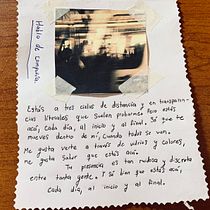 Hablo de compañía.
Estás a tres ciclos de distancia y en transparen-
cias literales que suelen probarnos. Pero estás
acá, cada día, al inicio y al final. Sí que te
mueves dentro de mí, cuando todos se van.
Me gusta verte a través de vidrios y colores,
me gusta saber que estás acá.
Tu presencia es tan muda y discreta
entre tanta gente. Y sí bien que estás acá,
Cada día, al inicio y al final.